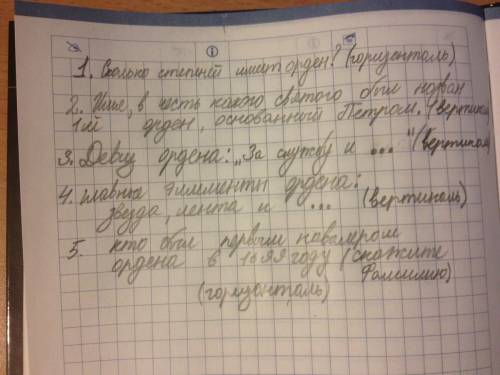 1. Сколько степеней имеет орден? (горизонталь)
2. Имя, в честь какого святого был назван
1й орден, основанный Петром. (вертикаль
3. Девиз ордена: „За службу и ... " (вертикаль)
4. главные элименты ордена:
звезда, лента и ... (вертикаль)
5. кто был первым кавалером
ордена в 1699 году (скажите
Фамилию)
(горизонталь)